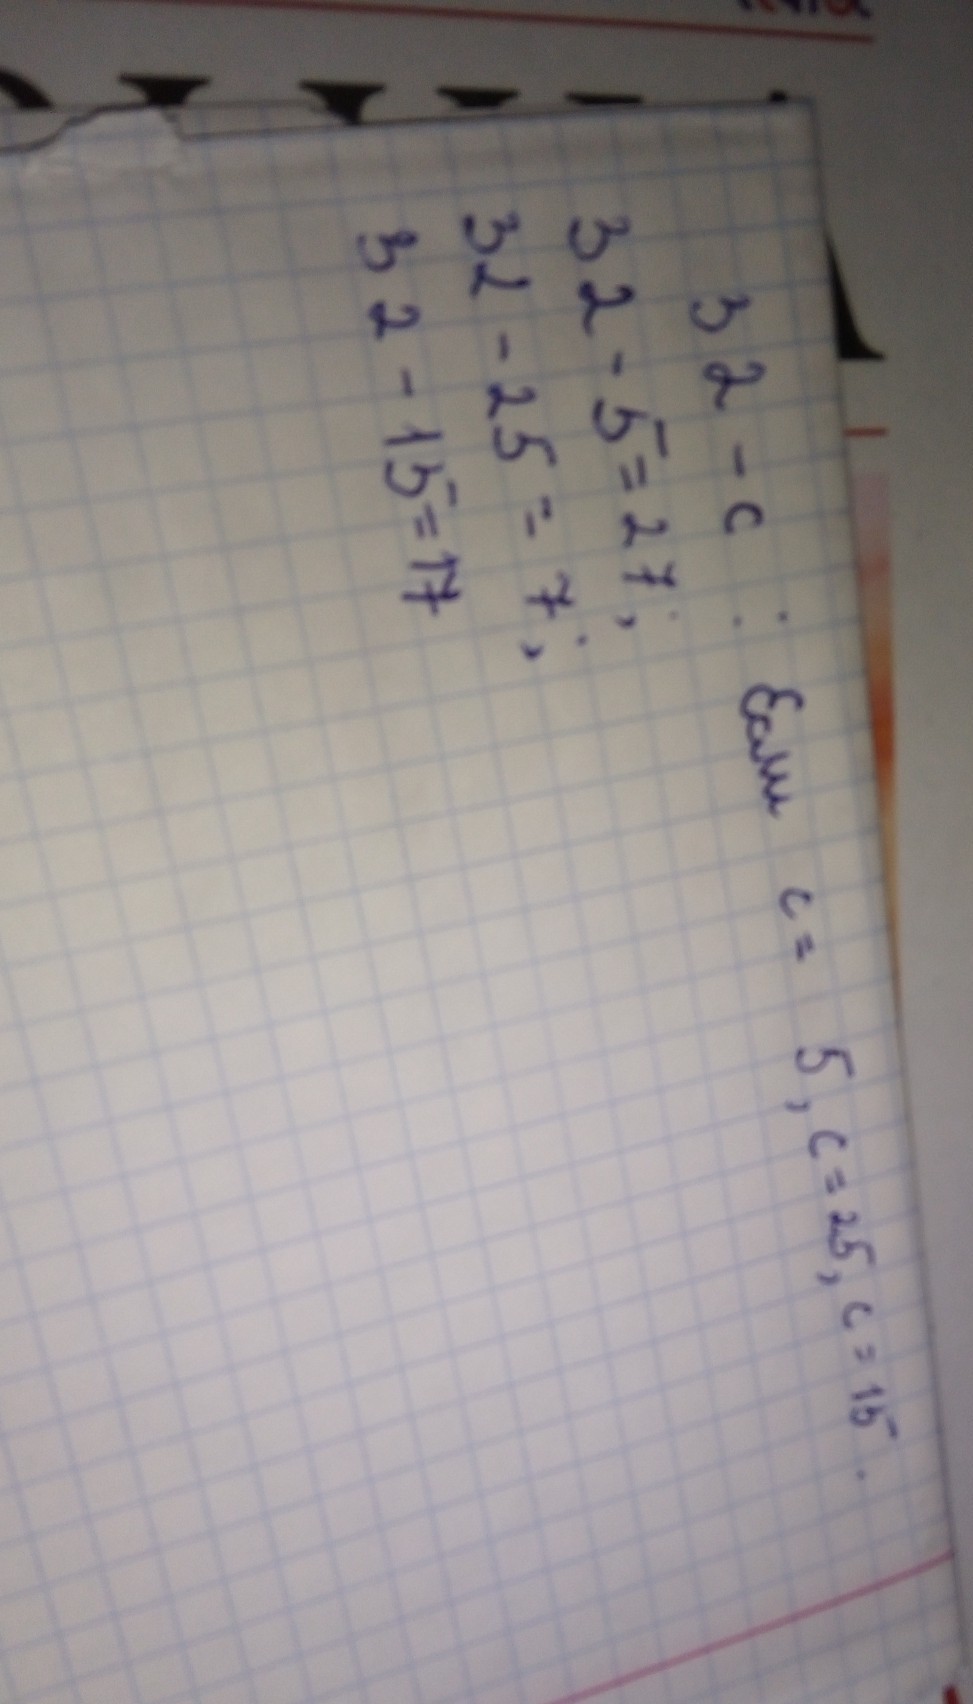 32 - c : Если c = 5, c = 25, c = 15.
32 - 5 = 27;
32 - 25 = 7;
32 - 15 = 17